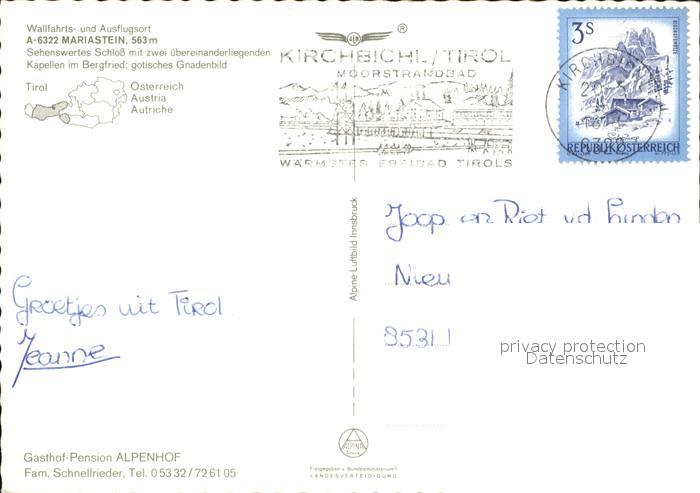 Wallfahrts- und Ausflugsort
A-6322 MARIASTEIN, 563 m
Sehenswertes Schloß mit zwei übereinanderliegenden
Kapellen im Bergfried; gotisches Gnadenbild
Tirol
Österreich
Austria
Autriche
®
KIRCHBICHL/TIROL
MOORSTRANDBAD
WÄRMSTES FREIBAD TIROLS
3S
KIRCHBICHL
REPUBLIK ÖSTERREICH
Alpine Luftbild Innsbruck
Joop en Riet vd Linden
Nieu
8531
privacy protection
Datenschutz
Groetjes uit Tirol
Jeanne
Gasthof-Pension ALPENHOF
Fam. Schnellrieder, Tel. 0 53 32 / 72 61 05
ALPINE
Freigegeben v. Bundesministerium f.
LANDESVERTEIDIGUNG